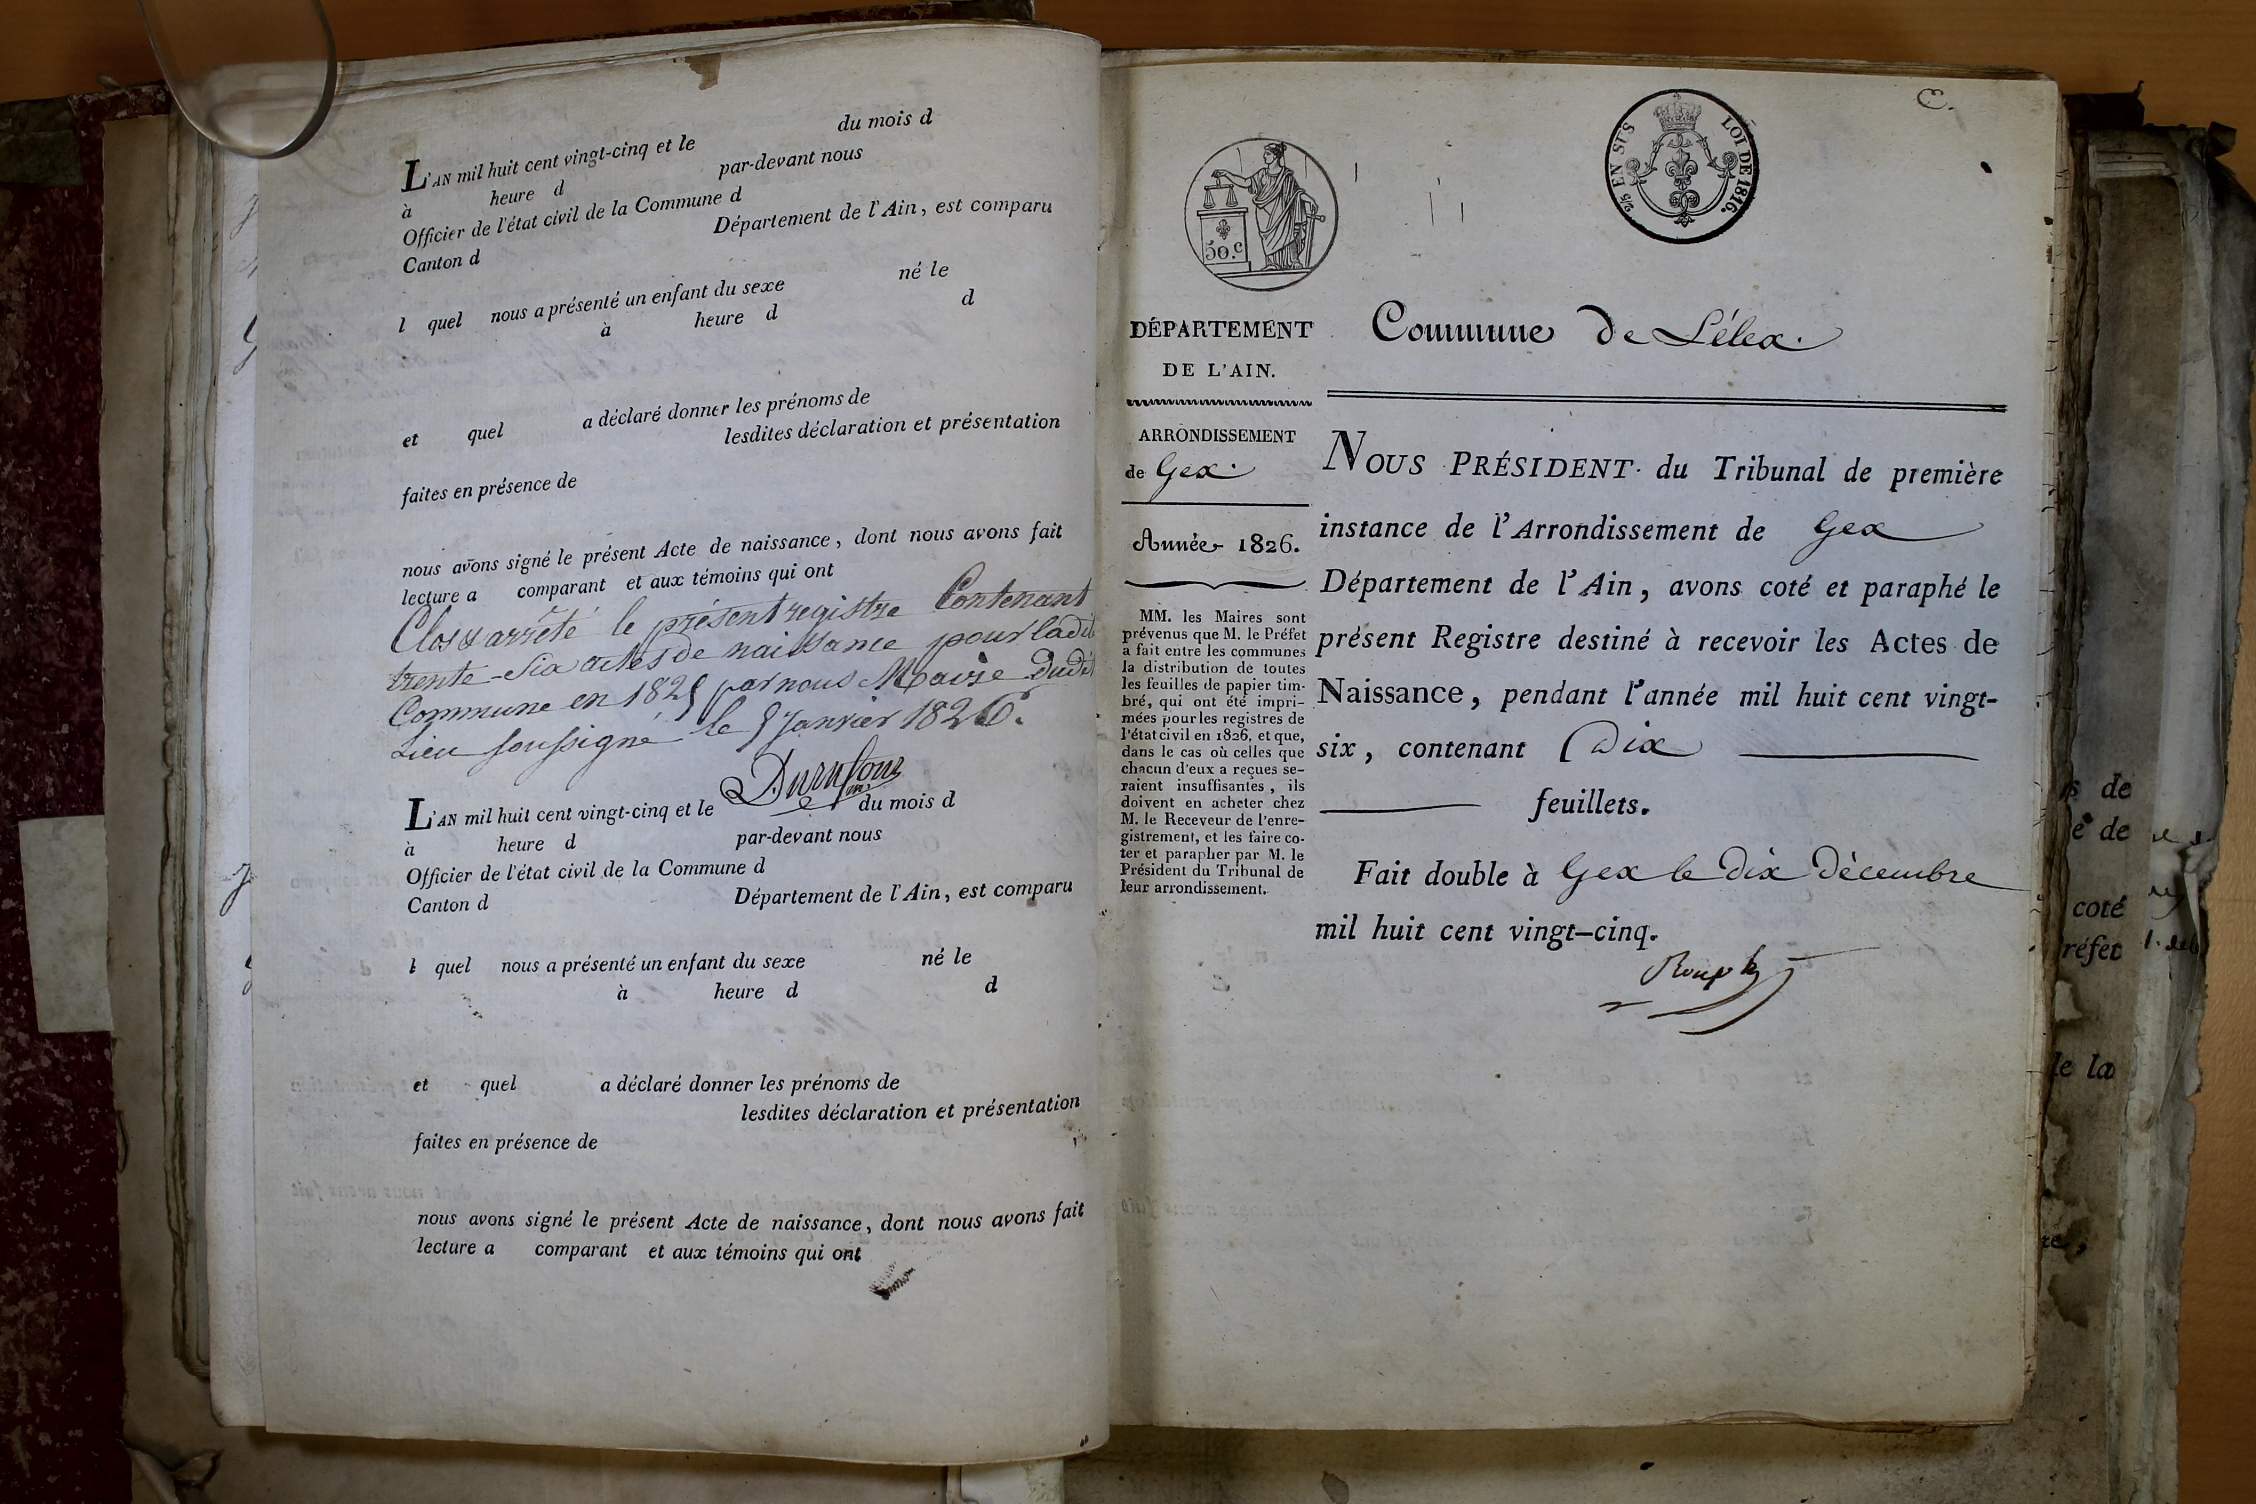 L'AN mil huit cent vingt-cinq et le du mois d
à heure d par-devant nous
Officier de l'état civil de la Commune d
Canton d Département de l'Ain, est comparu
l quel nous a présenté un enfant du sexe né le
à heure d d
et quel a déclaré donner les prénoms de
lesdites déclaration et présentation
faites en présence de
nous avons signé le présent Acte de naissance, dont nous avons fait
lecture a comparant et aux témoins qui ont
Clos & arrêté le présent registre Contenant
trente-six actes de naissance pour ladit
Commune en 1825 par nous Maire dudit
Lieu soussigné le 5 Janvier 1826.
L'AN mil huit cent vingt-cinq et le du mois d
à heure d par-devant nous
Officier de l'état civil de la Commune d
Canton d Département de l'Ain, est comparu
l quel nous a présenté un enfant du sexe né le
à heure d d
et quel a déclaré donner les prénoms de
lesdites déclaration et présentation
faites en présence de
nous avons signé le présent Acte de naissance, dont nous avons fait
lecture a comparant et aux témoins qui ont
50.c
2/5 EN SUS LOI DE 1816.
DÉPARTEMENT
DE L'AIN.
Commune de Lélex.
ARRONDISSEMENT
de Gex.
Année 1826.
MM. les Maires sont
prévenus que M. le Préfet
a fait entre les communes
la distribution de toutes
les feuilles de papier tim-
bré, qui ont été impri-
mées pour les registres de
l'état civil en 1826, et que,
dans le cas où celles que
chacun d'eux a reçues se-
raient insuffisantes, ils
doivent en acheter chez
M. le Receveur de l'enre-
gistrement, et les faire co-
ter et parapher par M. le
Président du Tribunal de
leur arrondissement.
NOUS PRÉSIDENT du Tribunal de première
instance de l'Arrondissement de Gex
Département de l'Ain, avons coté et paraphé le
présent Registre destiné à recevoir les Actes de
Naissance, pendant l'année mil huit cent vingt-
six, contenant Dix
feuillets.
Fait double à Gex le dix Décembre
mil huit cent vingt-cinq.
de
de
coté
réfet
de la